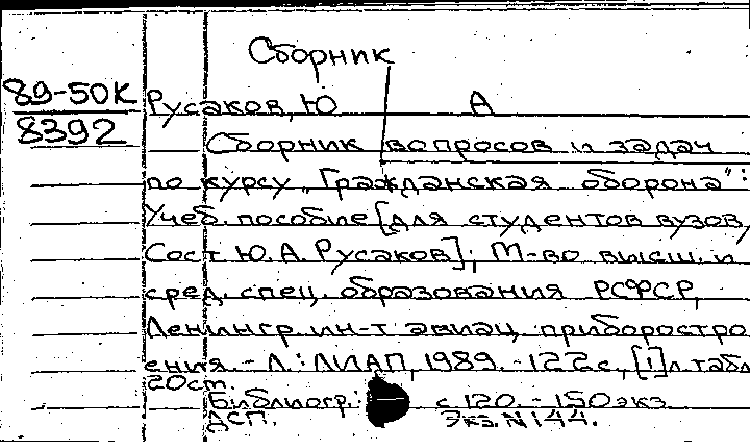 Сборник
89-50К
8392
Русаков, Ю А
Сборник вопросов и задач
по курсу „Гражданская оборона":
Учеб. пособие [для студентов вузов,
Сост. Ю.А. Русаков]; М-во высш. и
сред. спец. образования РСФСР,
Ленингр. ин-т авиац. приборостро
ения. - Л.: ЛИАП, 1989. - 122 с., [1] л. табл
20 см.
Библиогр.: с. 120. - 150 экз
ДСП. Экз. N 144.